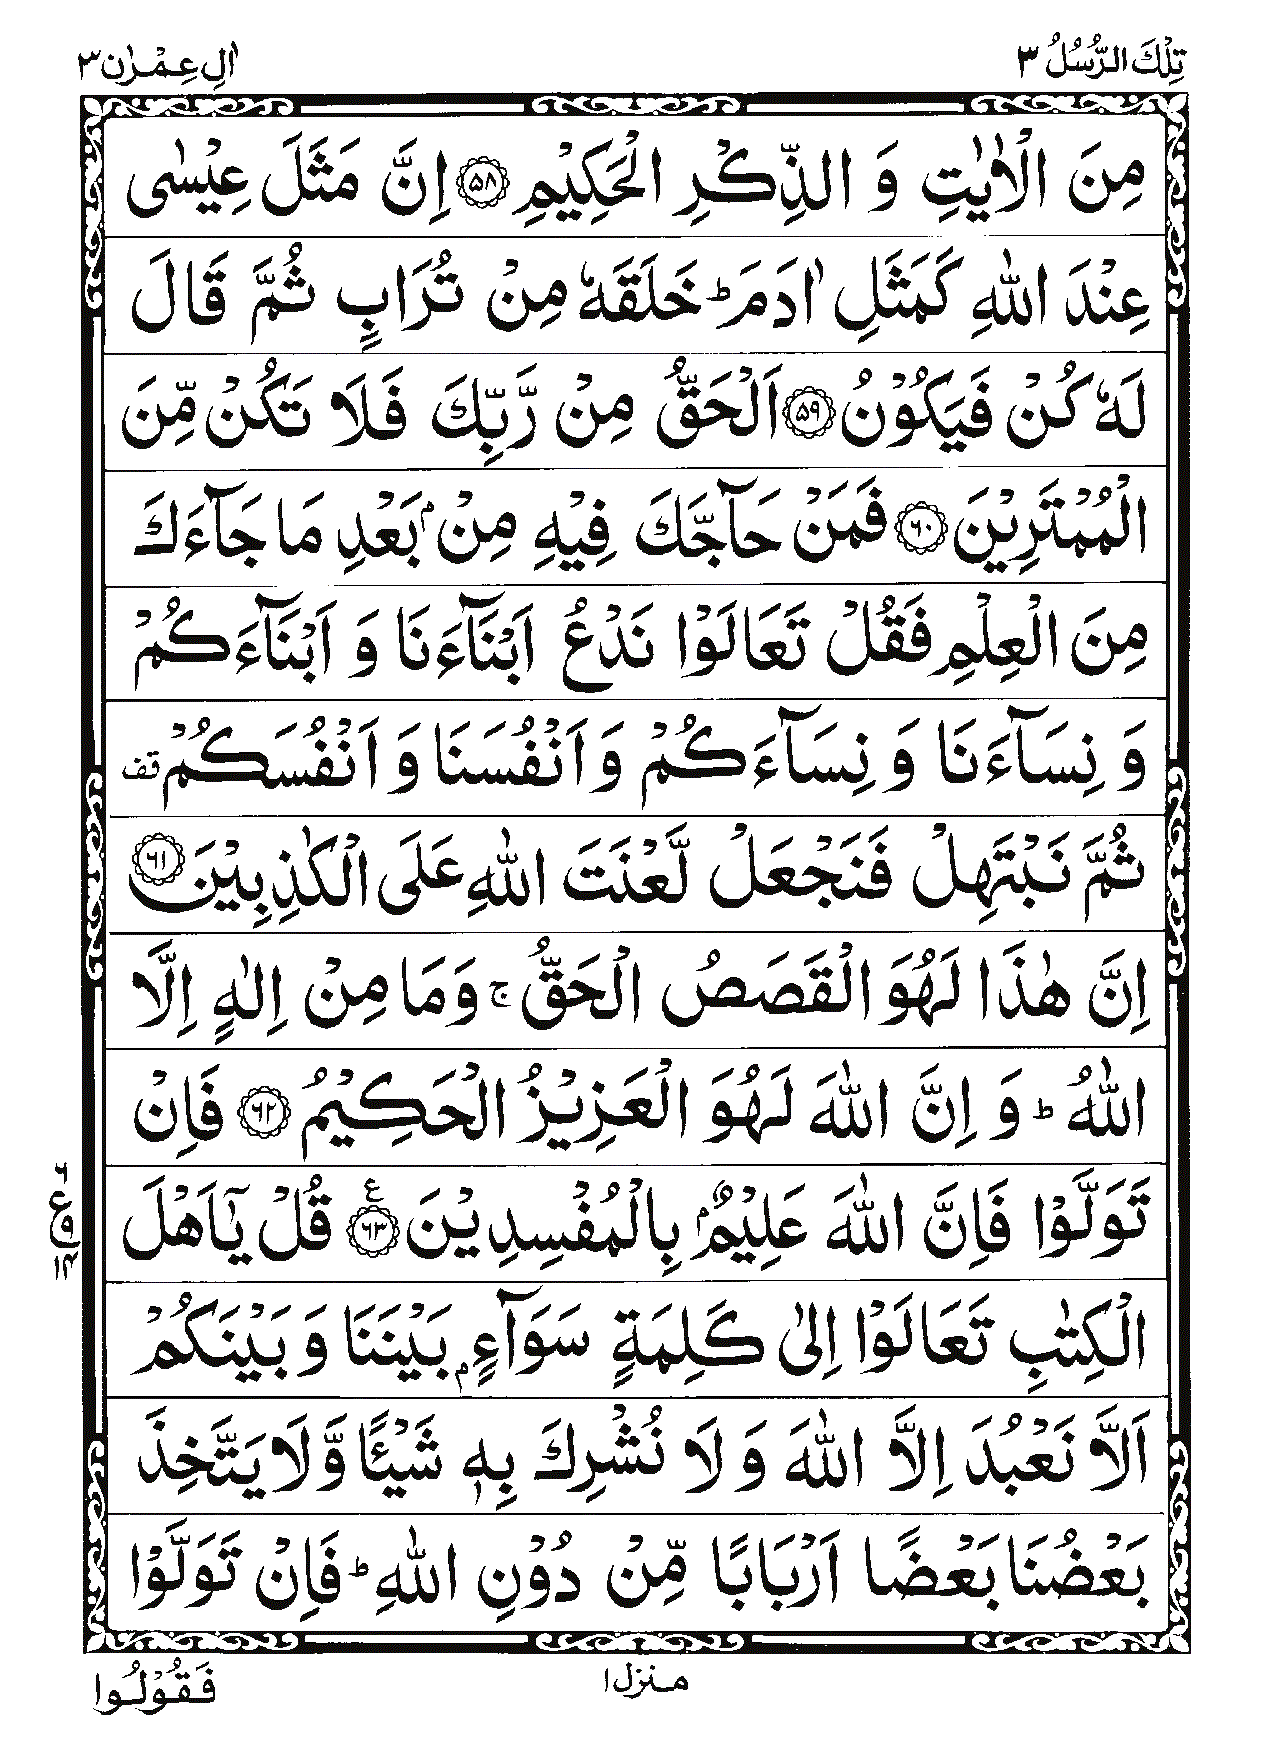 تِلْكَ الرُّسُلُ ٣
اٰلِ عِمْرٰن ٣
مِنَ الْاٰيٰتِ وَ الذِّكْرِ الْحَكِيْمِ ۝٥٨ اِنَّ مَثَلَ عِيْسٰى
عِنْدَ اللّٰهِ كَمَثَلِ اٰدَمَ ؕ خَلَقَهٗ مِنْ تُرَابٍ ثُمَّ قَالَ
لَهٗ كُنْ فَيَكُوْنُ ۝٥٩ اَلْحَقُّ مِنْ رَّبِّكَ فَلَا تَكُنْ مِّنَ
الْمُمْتَرِيْنَ ۝٦٠ فَمَنْ حَآجَّكَ فِيْهِ مِنْۢ بَعْدِ مَا جَآءَكَ
مِنَ الْعِلْمِ فَقُلْ تَعَالَوْا نَدْعُ اَبْنَآءَنَا وَ اَبْنَآءَكُمْ
وَ نِسَآءَنَا وَ نِسَآءَكُمْ وَ اَنْفُسَنَا وَ اَنْفُسَكُمْ قف
ثُمَّ نَبْتَهِلْ فَنَجْعَلْ لَّعْنَتَ اللّٰهِ عَلَى الْكٰذِبِيْنَ ۝٦١
اِنَّ هٰذَا لَهُوَ الْقَصَصُ الْحَقُّ ۚ وَمَا مِنْ اِلٰهٍ اِلَّا
اللّٰهُ ؕ وَ اِنَّ اللّٰهَ لَهُوَ الْعَزِيْزُ الْحَكِيْمُ ۝٦٢ فَاِنْ
تَوَلَّوْا فَاِنَّ اللّٰهَ عَلِيْمٌۢ بِالْمُفْسِدِيْنَ ۝٦٣ ع قُلْ يٰۤاَهْلَ
٦
ع
٩
١٤
الْكِتٰبِ تَعَالَوْا اِلٰى كَلِمَةٍ سَوَآءٍۭ بَيْنَنَا وَ بَيْنَكُمْ
اَلَّا نَعْبُدَ اِلَّا اللّٰهَ وَ لَا نُشْرِكَ بِهٖ شَيْـًٔا وَّ لَا يَتَّخِذَ
بَعْضُنَا بَعْضًا اَرْبَابًا مِّنْ دُوْنِ اللّٰهِ ؕ فَاِنْ تَوَلَّوْا
منزل ١
فَقُوْلُوا